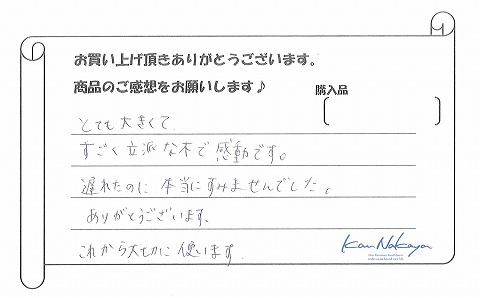 お買い上げ頂きありがとうございます。
商品のご感想をお願いします♪
購入品
とても大きくて
すごく立派な木で感動です。
遅れたのに本当にすみませんでした。
ありがとうございます。
これから大切に使います
Kan Nakaya